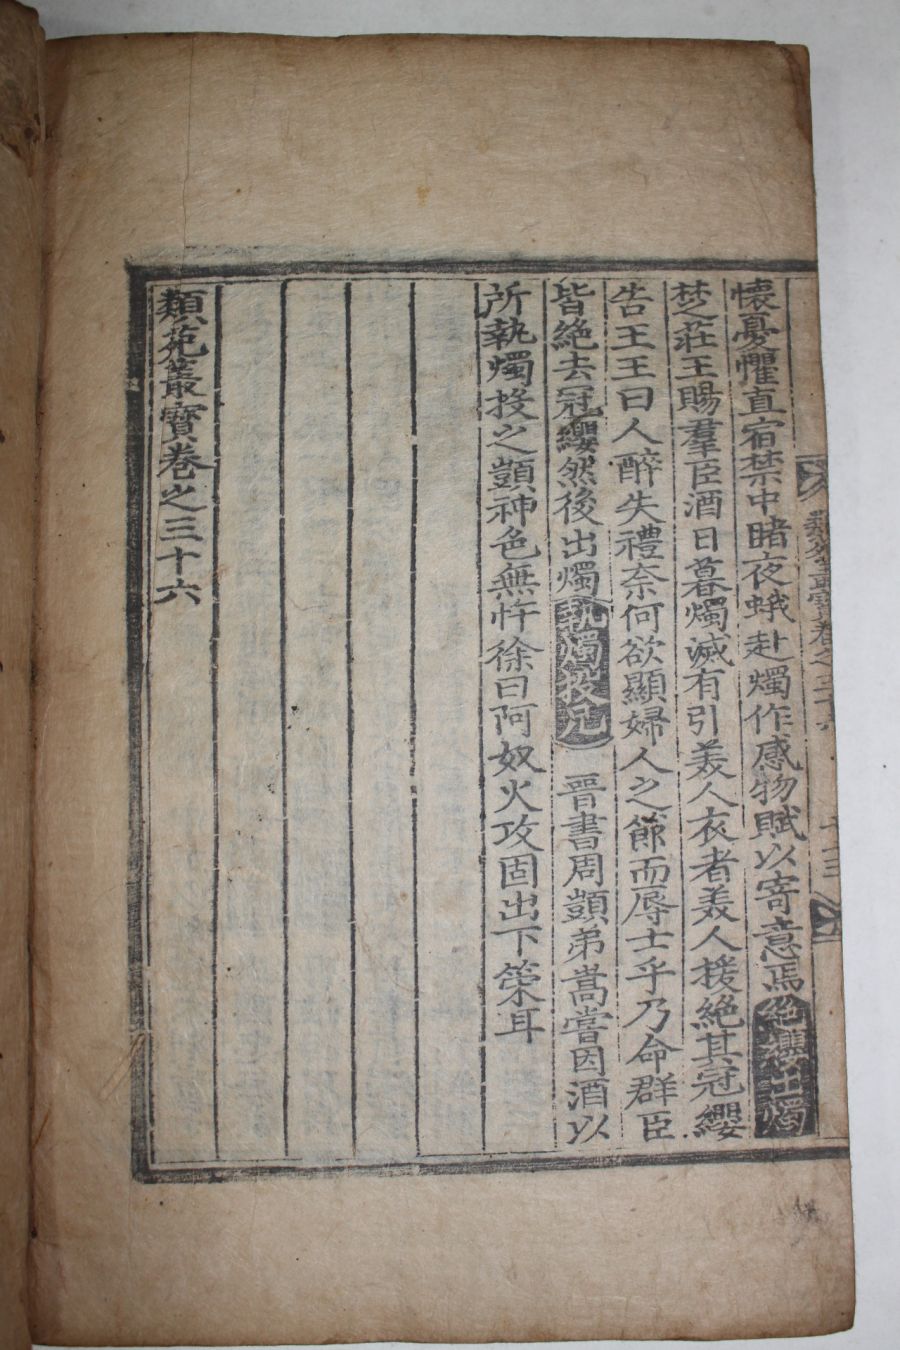 懷憂懼直宿禁中睹夜蛾赴燭作感物賦以寄意焉絶纓出燭
楚莊王賜羣臣酒日暮燭滅有引美人衣者美人援絶其冠纓
告王王曰人醉失禮奈何欲顯婦人之節而辱士乎乃命群臣
皆絶去冠纓然後出燭執燭投兄 晉書周顗弟嵩嘗因酒以
所執燭投之顗神色無忤徐曰阿奴火攻固出下策耳
類苑叢寶卷之三十六